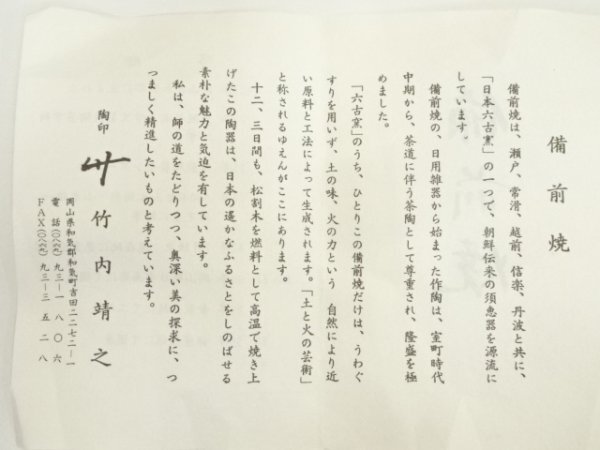 備前焼
備前焼は、瀬戸、常滑、越前、信楽、丹波と共に、
「日本六古窯」の一つで、朝鮮伝来の須恵器を源流に
しています。
備前焼の、日用雑器から始まった作陶は、室町時代
中期から、茶道に伴う茶陶として尊重され、隆盛を極
めました。
「六古窯」のうち、ひとりこの備前焼だけは、うわぐ
すりを用いず、土の味、火の力という 自然により近
い原料と工法によって生成されます。「土と火の芸術」
と称されるゆえんがここにあります。
十二、三日間も、松割木を燃料として高温で焼き上
げたこの陶器は、日本の遥かなふるさとをしのばせる
素朴な魅力と気迫を有しています。
私は、師の道をたどりつつ、奥深い美の探求に、つ
つましく精進したいものと考えています。
陶印 竹内靖之
岡山県和気郡和気町吉田二二七二−一
電話(〇八六九)九三−一八〇六
FAX(〇八六九)九三−三五二八